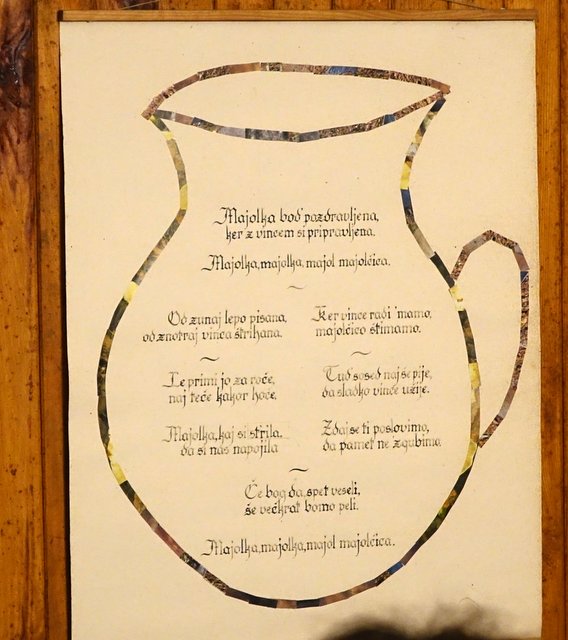 Majolka bod' pozdravljena,
ker z vincem si pripravljena.
Majolka, majolka, majol majolčica.
Od zunaj lepo pisana,
od znotraj vinca štrihana.
Le primi jo za roče,
naj teče kakor hoče.
Majolka, kaj si st'rila,
da si nas napojila
Ker vince radi 'mamo,
majolčico štimamo.
Tud' sosed naj še pije,
da sladko vince užije.
Zdaj se ti poslovimo,
da pamet ne zgubimo.
Če bog da, spet veseli,
še večkrat bomo peli.
Majolka, majolka, majol majolčica.